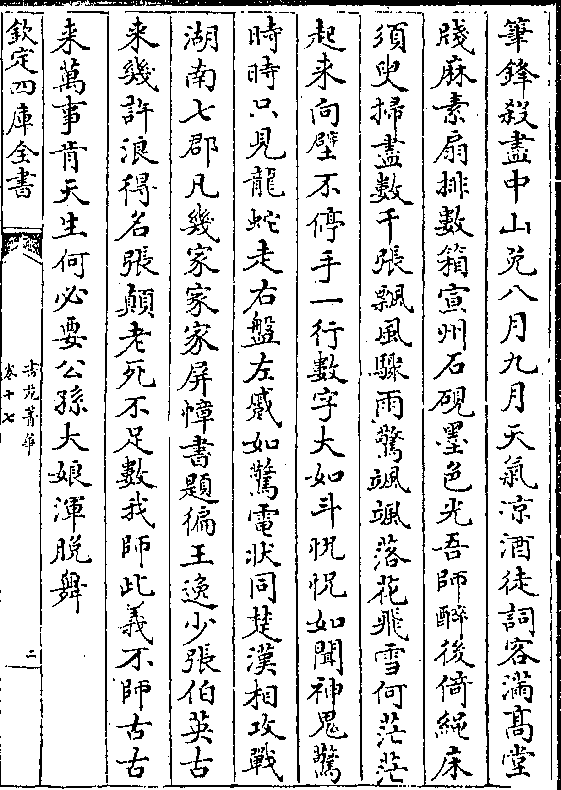 筆鋒殺盡中山兎八月九月天氣凉酒徒詞客滿髙堂
牋麻素扇排數箱宣州石硯墨色光吾師醉後倚繩床
須臾掃盡數千張飄風驟雨驚颯颯落花飛雪何茫茫
起来向壁不停手一行數字大如斗怳怳如聞神鬼驚
時時只見龍蛇走右盤左蹙如驚電状同楚漢相攻戰
湖南七郡凡幾家家家屏幛書題徧王逸少張伯英古
来幾許浪得名張顛老死不足數我師此義不師古古
来萬事肯天生何必要公孫大娘渾脫舞
欽定四庫全書
書苑菁華
卷十七
二